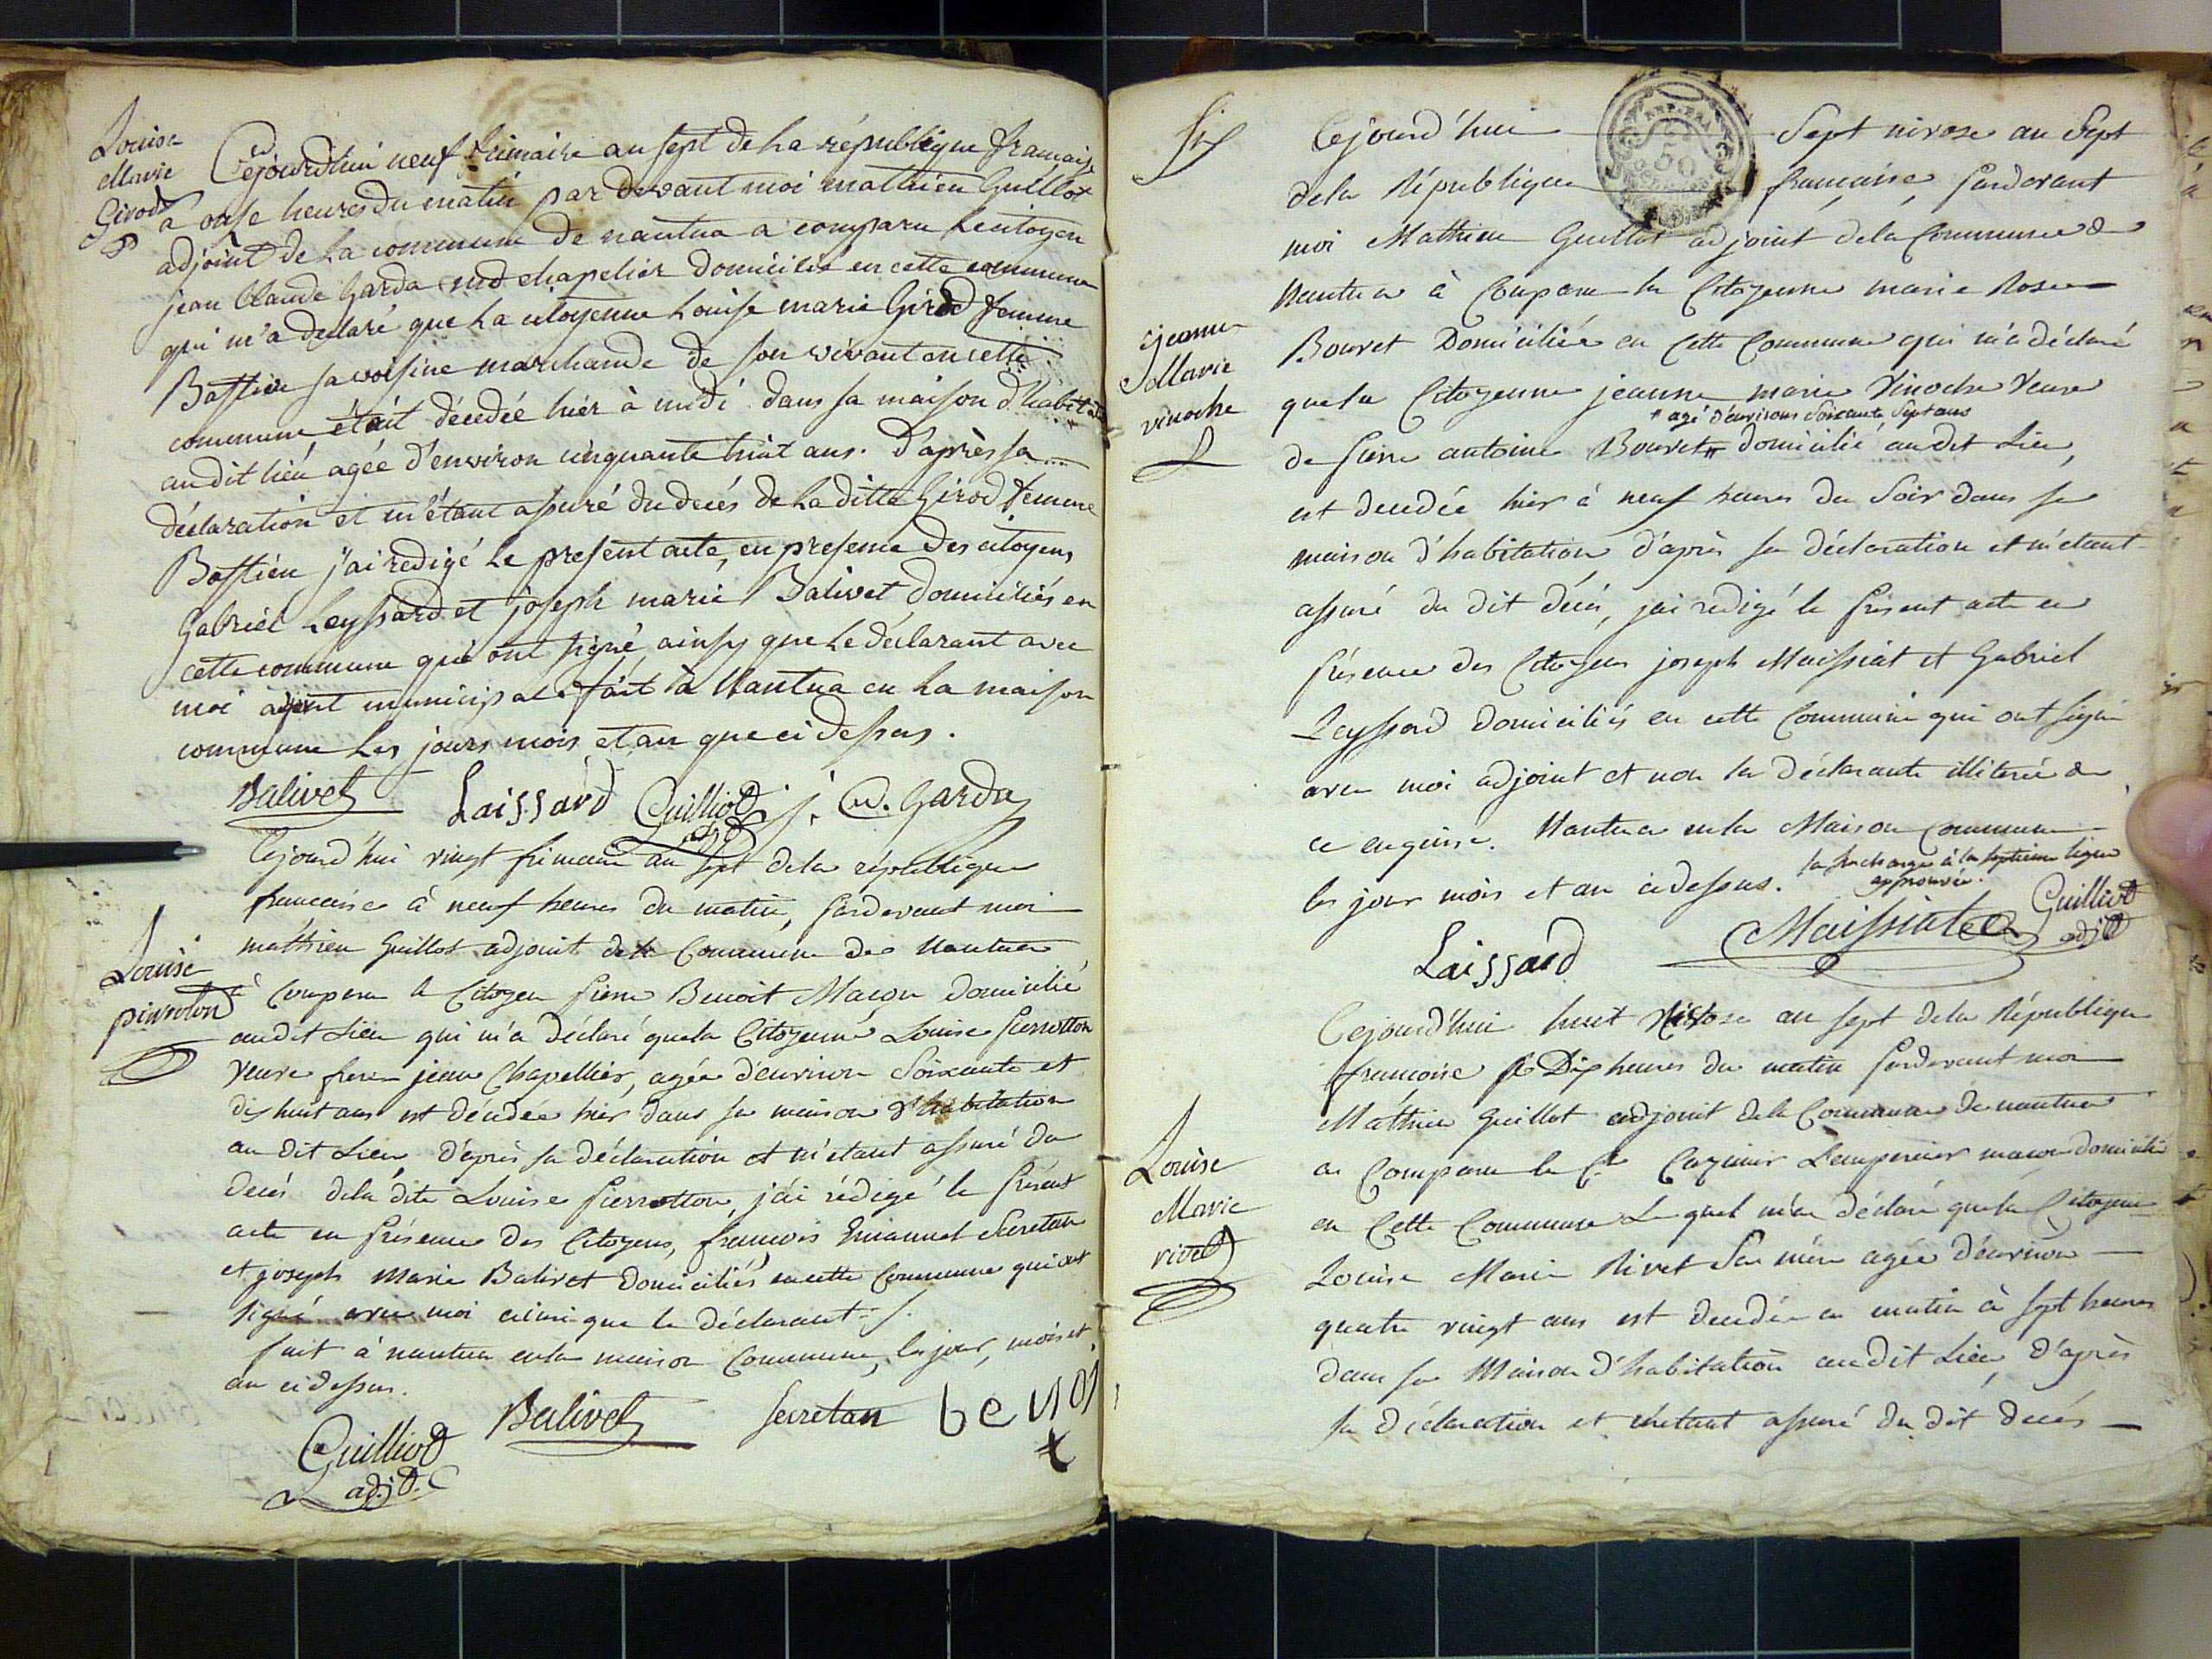 Louise
Marie
Girod
Cejourdhui neuf frimaire an sept de la république française
à onse heures du matin par devant moi mathieu Guillot
adjoint de la commune de nantua a comparu le citoyen
jean Claude Garda md chapelier domicilié en cette commune
qui m'a declaré que la citoyenne Louise marie Girod femme
Bastien sa voisine marchande de son vivant en cette
commune était décedée hièr à midi dans sa maison d'habitation
au dit lieu agée d'environ cinquante huit ans. D'après sa
déclaration et m'étant assuré du decés de la ditte Girod femme
Bastien j'ai redigé le present acte, en presence des citoyens
Gabriel Leyssard et joseph marie Balivet domiciliés en
cette commune qui ont signé ainsy que le déclarant avec
moi agent municipal. fait à Nantua en la maison
commune les jours mois et an que ci dessus.
Balivet Laissard Guilliot adjt j. C. Garda
Louise
pirroton
Cejourd'hui vingt frimaire an sept de la république
française à neuf heures du matin, pardevant moi
mathieu Guillot adjoint de la Commune de Nantua
à Comparu le Citoyen pierre Benoit Maçon domicilié
audit Lieu qui m'a déclaré que la Citoyenne Louise pierrotton
veuve jean Chapellier, agée d'environ Soixante et
dix huit ans est décédée hièr dans sa maison d'habitation
au dit Lieu d'après sa déclaration et m'étant assuré du
decés de la dite Louise pierrotton, j'ai rédigé le présent
acte en présence des Citoyens, françois Emanuel Secretan
et joseph Marie Balivet domiciliés en cette Commune qui ont
signé avec moi ainsi que le déclarant
fait à nantua en la maison Commune, les jour, mois et
an ci dessus.
Guilliot Balivet Secretan benoi
adjt. t
Cejourd'hui Sept nivose an Sept
de la République française, pardevant
moi Mathieu Guillot adjoint de la Commune de
Nantua à Comparu la Citoyenne marie Rose
Jeanne
Marie
vinoche
Bouvet Domiciliée en Cette Commune qui m'a déclaré
que la Citoyenne jeanne marie Vinoche Veuve
# agé d'environs Soixante Sept ans
de pierre antoine Bouvet # domicilié audit Lieu,
est decedée hier à neuf heures du Soir dans sa
maison d'habitation d'après sa déclaration et m'étant
assuré du dit décés, j'ai redigé le présent acte en
présence des Citoyens joseph Maissiat et Gabriel
Leyssard domiciliés en cette Commune qui ont signé
avec moi adjoint et non la déclarante illiterée de
ce enquise. Nantua en la Maison Commune
les jour mois et an ci dessus. la surcharge à la septieme ligne
approuvée.
Laissard Maissiat Guilliot
adjt
Cejourd'hui huit Nivose an sept de la République
françoise à Dix heures du matin pardevant moi
Mathieu Guillot adjoint de la Commune de nantua
Louise
Marie
rivet
a Comparu le Cen Cazimir Lempereur maçon domicilié
en Cette Commune Lequel m'a déclaré que la Citoyenne
Louise Marie Rivet Sa mère agée d'environ
quatre vingt ans est decedée ce matin à sept heures
dans sa Maison d'habitation audit Lieu, d'après
sa déclaration et m'étant assuré du dit decés